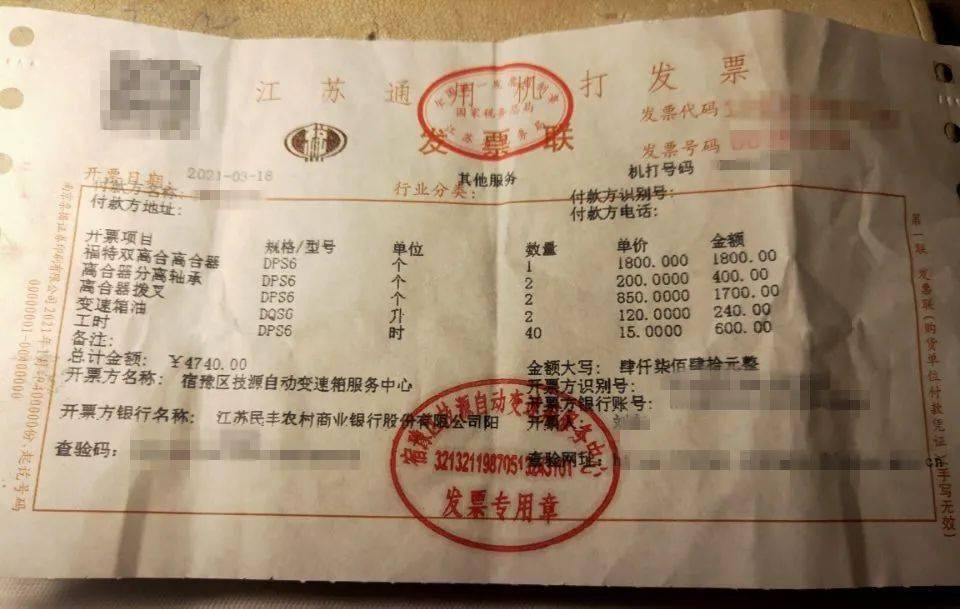 江苏通用机打发票
国家税务总局
发票代码
发票联
发票号码
机打号码
开票日期 2021-03-18
行业分类: 其他服务
付款方识别号:
付款方地址:
付款方电话:
开票项目 规格/型号 单位 数量 单价 金额
福特双离合离合器 DPS6 个 1 1800.000 1800.00
离合器分离轴承 DPS6 个 2 200.0000 400.00
离合器拨叉 DPS6 个 2 850.0000 1700.00
变速箱油 DQS6 升 2 120.0000 240.00
工时 DPS6 时 40 15.0000 600.00
备注:
总计金额: ￥4740.00 金额大写: 肆仟柒佰肆拾元整
开票方名称: 宿豫区技源自动变速箱服务中心 开票方识别号:
开票方银行账号:
开票方银行名称: 江苏民丰农村商业银行股份有限公司阳 开票人: 刘
查验码: 查验网址:
cn
发票专用章
第一联 发票联(购货单位付款凭证)(手写无效)